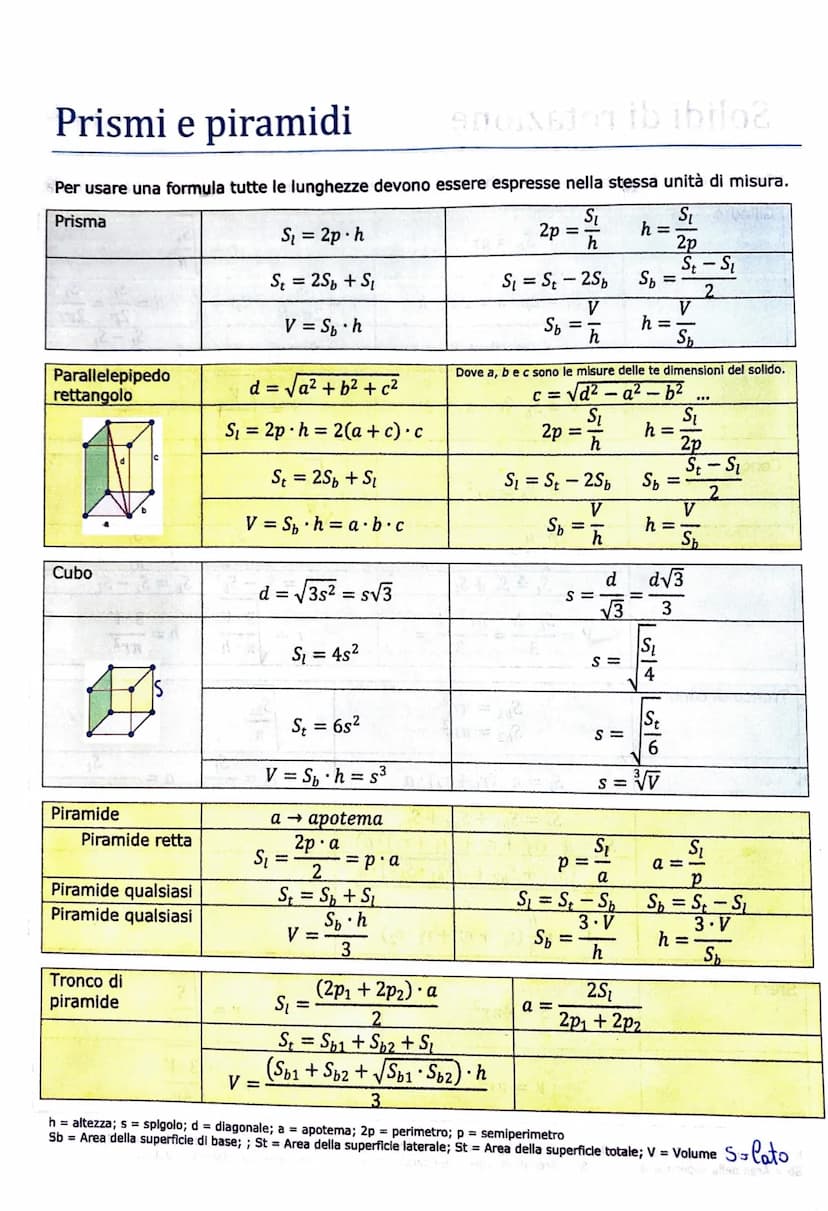 Prismi e piramidi
Per usare una formula tutte le lunghezze devono essere espresse nella stessa unità di misura.
Prisma
Sₗ = 2p · h
2p = Sₗ/h  h = Sₗ/2p
Sₜ = 2S_b + Sₗ
Sₗ = Sₜ − 2S_b  S_b = (Sₜ − Sₗ)/2
V = S_b · h
S_b = V/h  h = V/S_b
Parallelepipedo
rettangolo
d = √(a² + b² + c²)
Dove a, b e c sono le misure delle te dimensioni del solido.
c = √(d² − a² − b²) ...
Sₗ = 2p · h = 2(a + c) · c
2p = Sₗ/h  h = Sₗ/2p
d
c
b
a
Sₜ = 2S_b + Sₗ
Sₗ = Sₜ − 2S_b  S_b = (Sₜ − Sₗ)/2
V = S_b · h = a · b · c
S_b = V/h  h = V/S_b
Cubo
d = √(3s²) = s√3
s = d/√3 = d√3/3
Sₗ = 4s²
s = √(Sₗ/4)
S
Sₜ = 6s²
s = √(Sₜ/6)
V = S_b · h = s³
s = ∛V
Piramide
a → apotema
Piramide retta
Sₗ = (2p · a)/2 = p · a
p = Sₗ/a  a = Sₗ/p
Piramide qualsiasi
Sₜ = S_b + Sₗ
Sₗ = Sₜ − S_b  S_b = Sₜ − Sₗ
Piramide qualsiasi
V = (S_b · h)/3
S_b = (3 · V)/h  h = (3 · V)/S_b
Tronco di
piramide
Sₗ = ((2p₁ + 2p₂) · a)/2
a = 2Sₗ/(2p₁ + 2p₂)
Sₜ = S_b1 + S_b2 + Sₗ
V = ((S_b1 + S_b2 + √(S_b1 · S_b2)) · h)/3
h = altezza; s = spigolo; d = diagonale; a = apotema; 2p = perimetro; p = semiperimetro
Sb = Area della superficie di base; ; St = Area della superficie laterale; St = Area della superficie totale; V = Volume S=lato